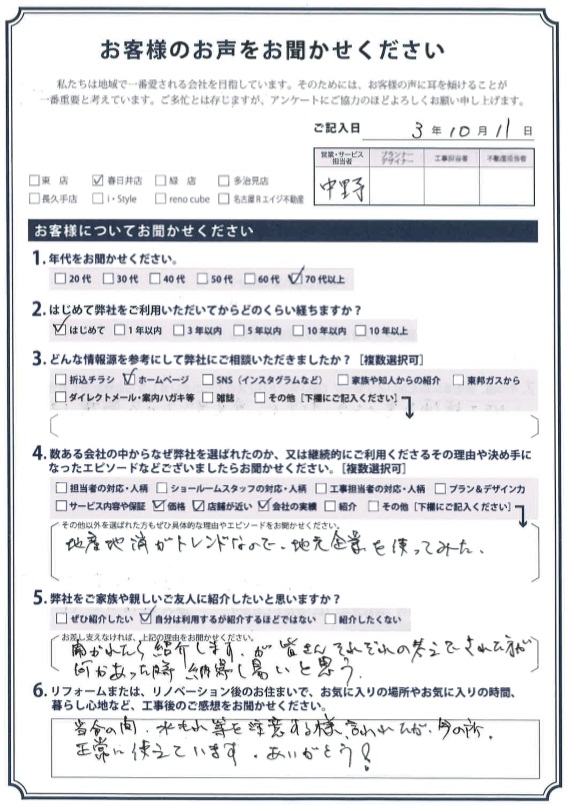 お客様のお声をお聞かせください
私たちは地域で一番愛される会社を目指しています。そのためには、お客様の声に耳を傾けることが
一番重要と考えています。ご多忙とは存じますが、アンケートにご協力のほどよろしくお願い申し上げます。
ご記入日 3年10月11日
営業・サービス担当者 プランナー・デザイナー 工事担当者 不動産担当者
中野
□東 店 ☑春日井店 □緑 店 □多治見店
□長久手店 □i・Style □reno cube □名古屋Rエイジ不動産
お客様についてお聞かせください
1. 年代をお聞かせください。
□20代 □30代 □40代 □50代 □60代 ☑70代以上
2. はじめて弊社をご利用いただいてからどのくらい経ちますか？
☑はじめて □1年以内 □3年以内 □5年以内 □10年以内 □10年以上
3. どんな情報源を参考にして弊社にご相談いただきましたか？［複数選択可］
□折込チラシ ☑ホームページ □SNS（インスタグラムなど） □家族や知人からの紹介 □東邦ガスから
□ダイレクトメール・案内ハガキ等 □雑誌 □その他［下欄にご記入ください］
4. 数ある会社の中からなぜ弊社を選ばれたのか、又は継続的にご利用くださるその理由や決め手に
なったエピソードなどございましたらお聞かせください。［複数選択可］
□担当者の対応・人柄 □ショールームスタッフの対応・人柄 □工事担当者の対応・人柄 □プラン＆デザイン力
□サービス内容や保証 ☑価格 ☑店舗が近い ☑会社の実績 □紹介 □その他［下欄にご記入ください］
その他以外を選ばれた方もぜひ具体的な理由やエピソードをお聞かせください。
地産地消がトレンドなので、地元企業を使ってみた。
5. 弊社をご家族や親しいご友人に紹介したいと思いますか？
□ぜひ紹介したい ☑自分は利用するが紹介するほどではない □紹介したくない
お差し支えなければ、上記の理由をお聞かせください。
聞かれたら紹介します。が皆さんそれぞれの答えでされた方が
何かあった時納得し易いと思う。
6. リフォームまたは、リノベーション後のお住まいで、お気に入りの場所やお気に入りの時間、
暮らし心地など、工事後のご感想をお聞かせください。
当分の間、水もれ等を注意する様、言われたが、今の所、
正常に使えています。ありがとう！